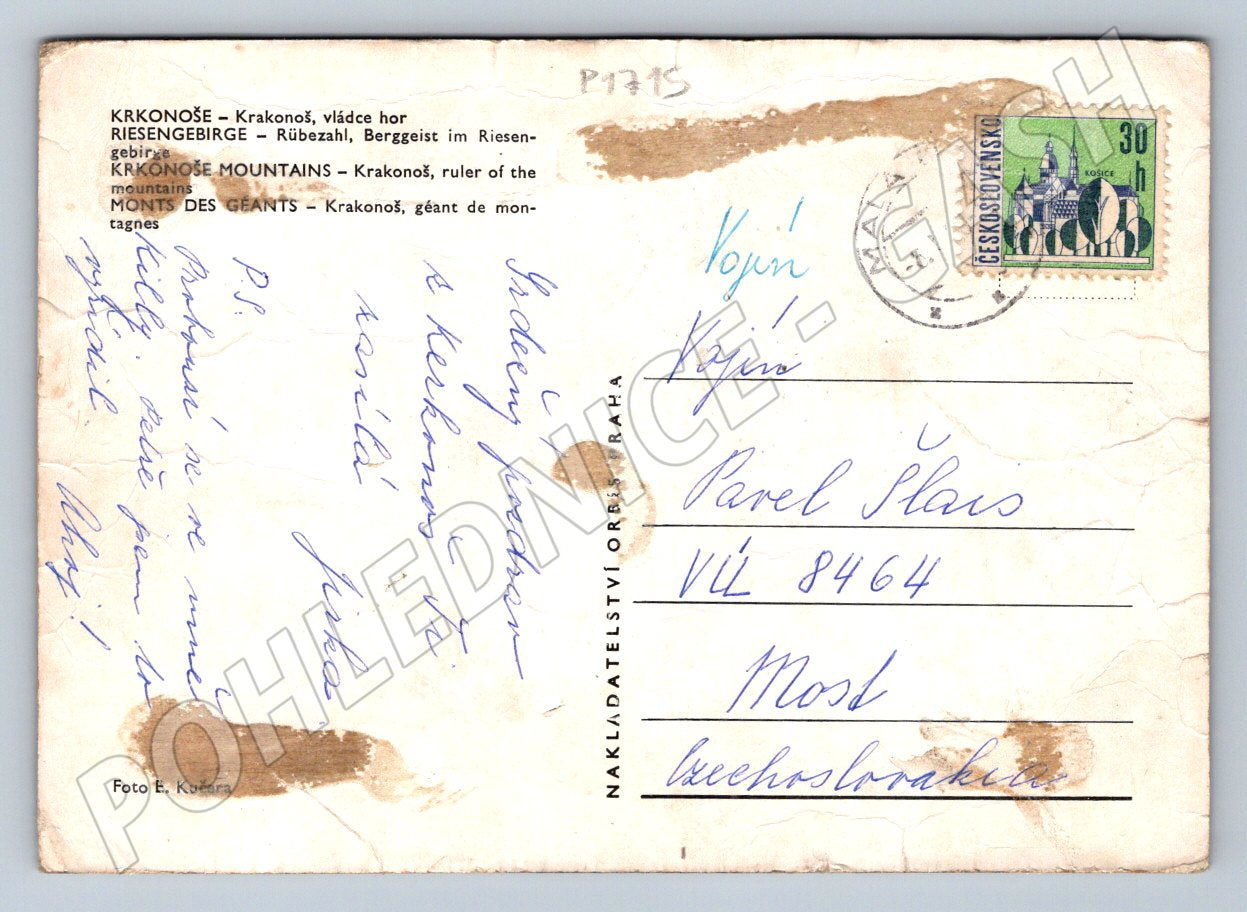 P1715
KRKONOŠE – Krakonoš, vládce hor
RIESENGEBIRGE – Rübezahl, Berggeist im Riesen-
gebirge
KRKONOŠE MOUNTAINS – Krakonoš, ruler of the
mountains
MONTS DES GÉANTS – Krakonoš, géant de mon-
tagnes
Srdečný pozdrav
z Kerkonoš Ti
zasílá
Jirka
P.S.
se ve mně
Killy. jsem to
vyřídil.
Ahoj!
Foto E. Kučera
NAKLADATELSTVÍ ORBIS PRAHA
ČESKOSLOVENSKO
30
h
KOŠICE
MAL
Vojín
Vojín
Pavel Šlais
VÚ 8464
Most
Czechoslovakia
POHLEDNICE - CASH